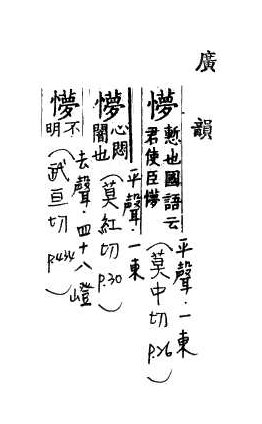 廣韻
懜慙也國語云
君使臣懜
平聲.一東
(莫中切 p.26)
懜心悶
闇也
平聲.一東
(莫紅切 p.30)
懜不
明
去聲.四十八嶝
(武亘切 p.434)